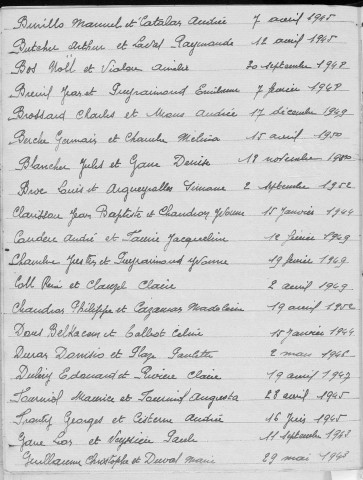 Burillo Manuel et Catalas Andrée 7 avril 1945
Butcher Arthur et Raymonde 12 avril 1945
Bos Noël et Violon Amélie 20 septembre 1948
Breuil Jean et Puyraimond Emilienne 7 février 1948
Brossard Charles et Mons Andrée 17 décembre 1949
Berche Germain et Chambe Mélina 15 avril 1950
Blancher Jules et Gane Denise 18 novembre
Broc Louis et Argueyrolles Simone 2 septembre 1952
Clarisseau Jean Baptiste et Chandron Yvonne 15 janvier 1944
André et Jacqueline 12 février 1949
Chambe et Puyraimond Yvonne 19 février 1949
Coll et Claire 2 avril 1949
Chandros Philippe et Cazamas Madeleine 19 avril 1952
Dars Belkacem et Calbot Céline 15 janvier 1944
Duras Dionisio et Plaza Paulette 2 mars 1946
Edouard et Rivière Claire 19 avril 1947
Fournial Maurice et Fournial Augusta 28 avril 1945
Georges et Cisterne Andrée 16 juin 1945
Gane et Veyssière Paule 11 septembre 1948
Guillaume Christophe et Duval Marie 29 mai 1948